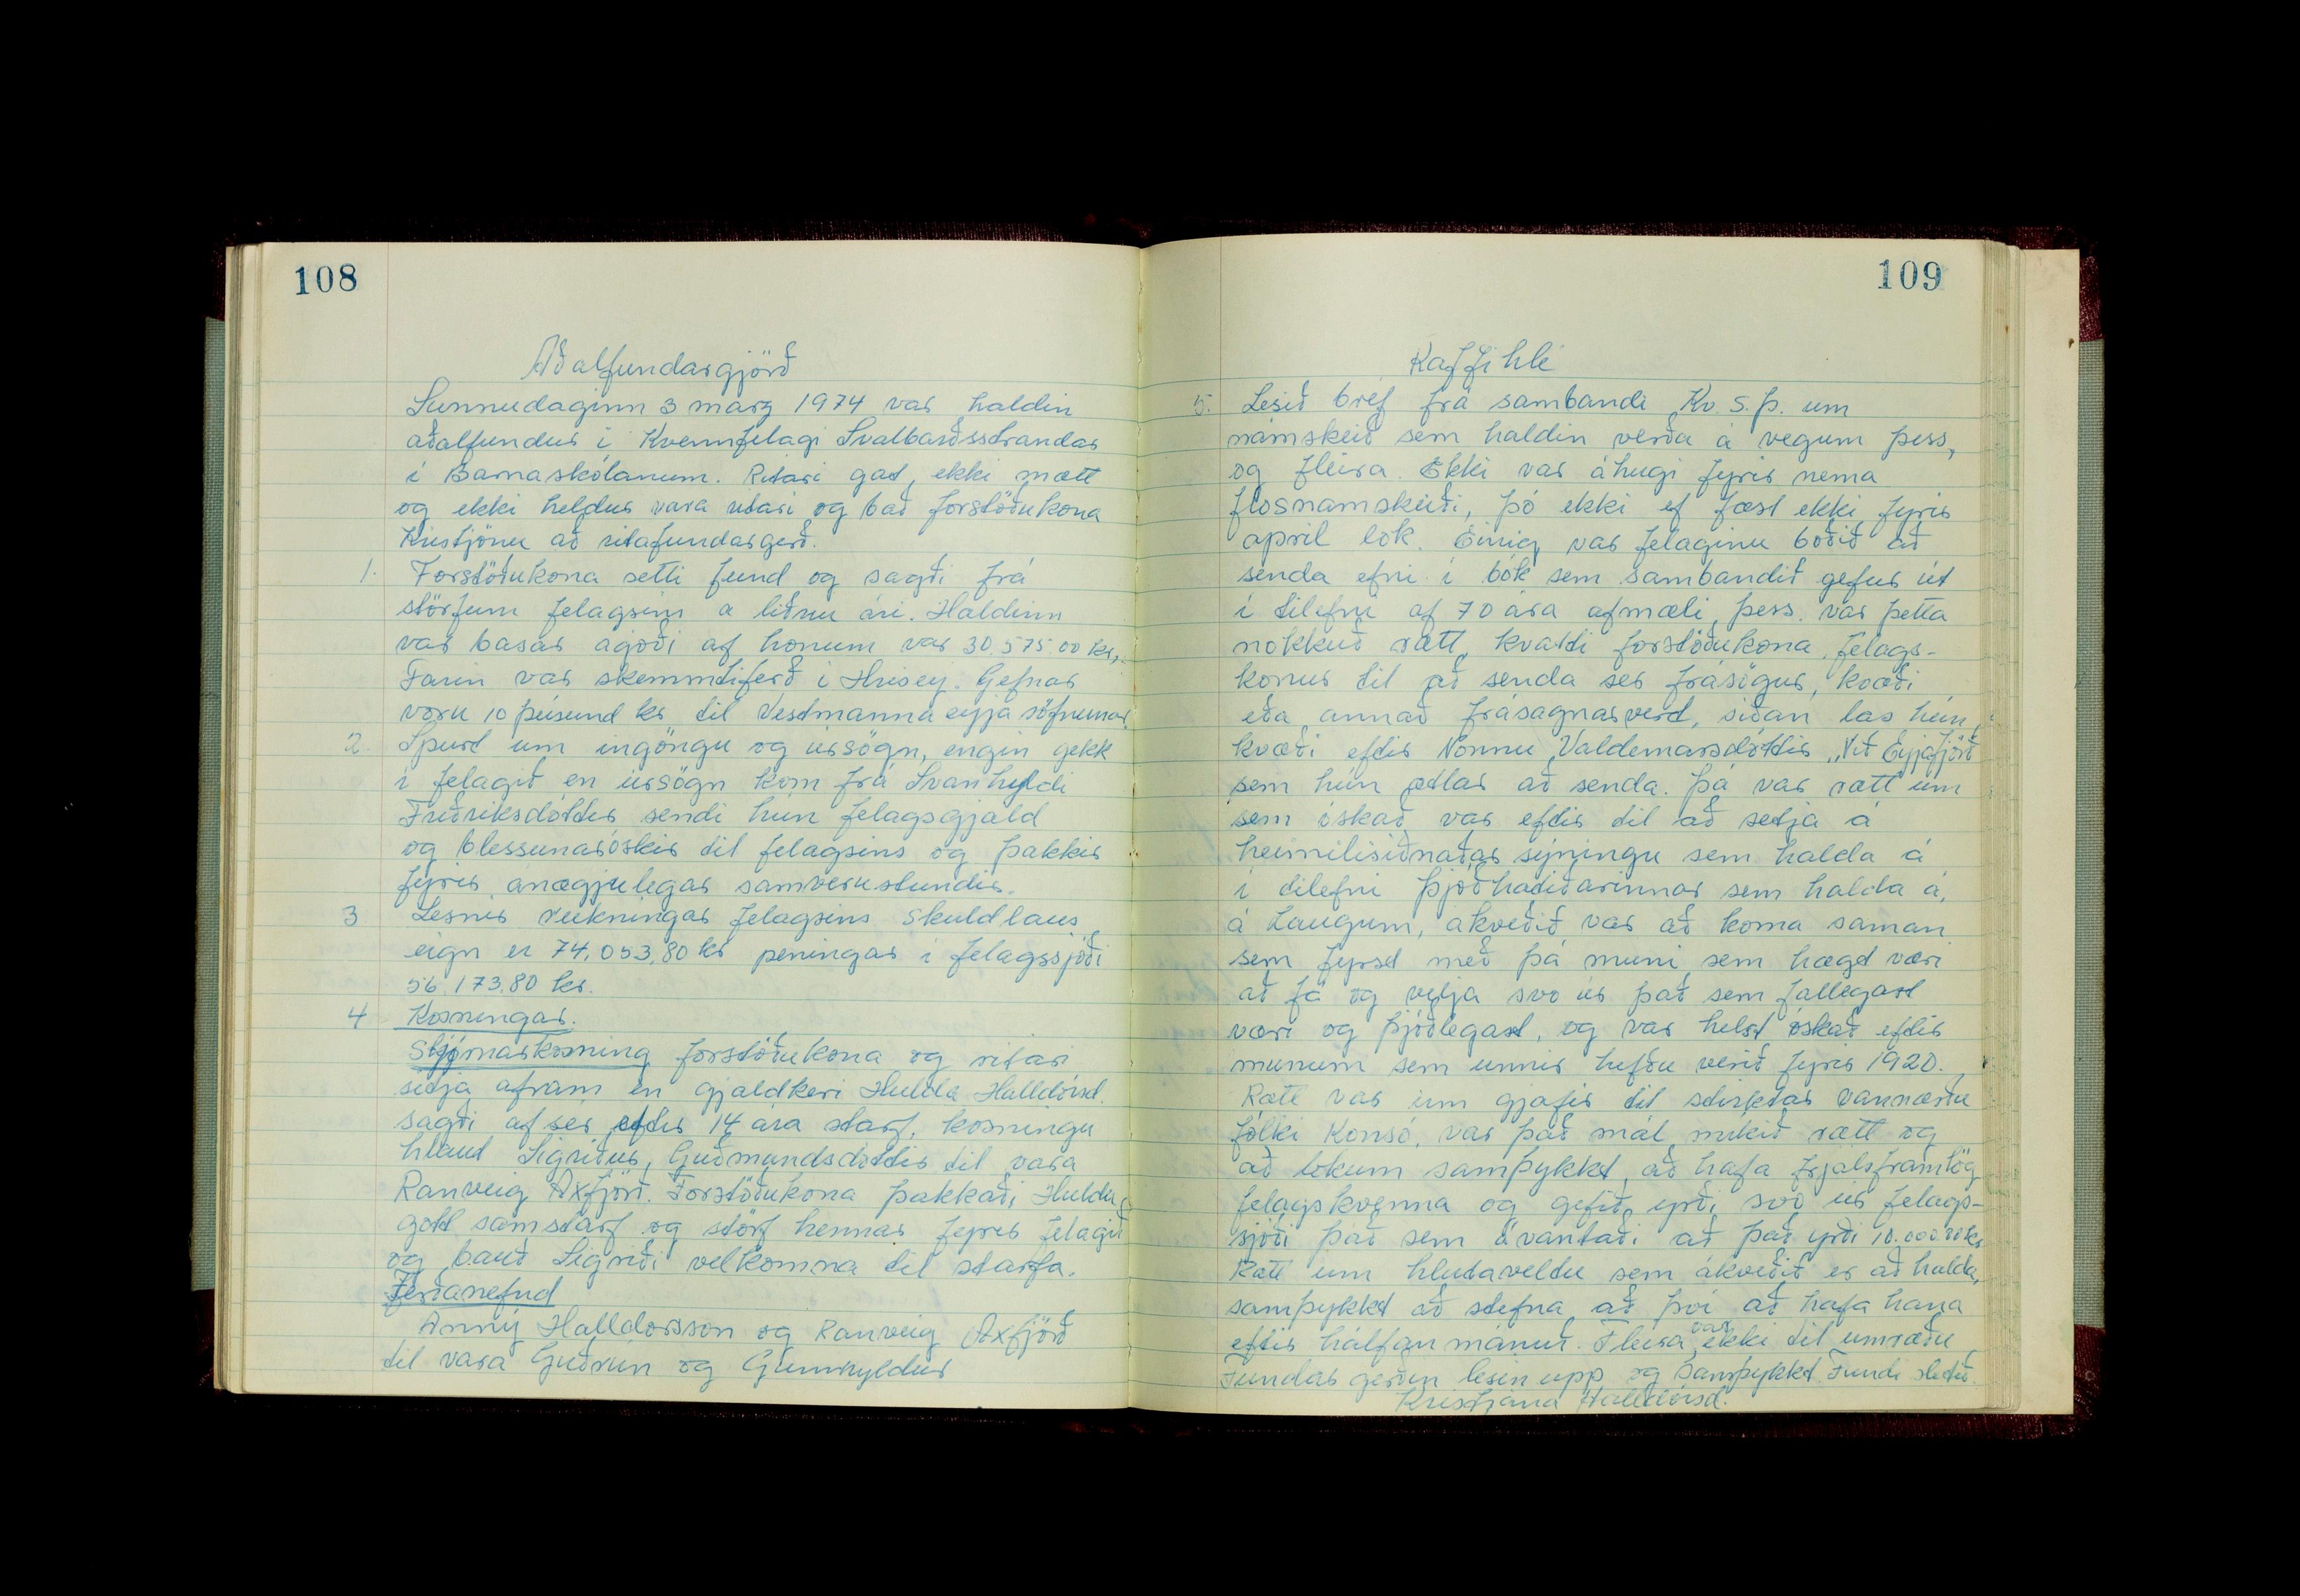 108
Aðalfundargjörð
Sunnudaginn 3 marz 1974 var haldin
aðalfundur í Kvennfelagi Svalbarðsstrandar
í Barnaskólanum. Ritari gat ekki mætt
og ekki heldur vara ritari og bað forstöðukona
Kristjönu að ritafundargerð.
1. Forstöðukona setti fund og sagði frá
störfum felagsins a liðnu ári. Haldinn
var basar ágóði af honum var 30.575.00 kr,-
Farin var skemmtiferð í Hrísey. Gefnar
voru 10 þúsund kr til Vestmannaeyja söfnunar.
2. Spurt um ingöngu og úrsögn, engin gekk
í felagið en úrsögn kom frá Svanhyldi
Friðriksdóttur sendi hún felagsgjald
og blessunaróskir til felagsins og þakkir
fyrir anægjulegar samverustundir.
3 Lesnir reikningar felagsins skuldlaus
eign er 74,053,80 kr peningar í felagssjóði
56.173.80 kr.
4 Kosningar.
Stjórnarkosning forstöðukona og ritari
sitja afram en gjaldkeri Hulda Halldórsd.
sagði af ser eftir 14 ára starf, kosningu
hlaut Sigríður Guðmundsdóttir til vara
Ranveig Axfjörð. Forstöðukona þakkaði Huldu
gott samstarf og störf hennar fyrir felagið
og bauð Sigríði velkomna til starfa.
Ferðanefnd
Anný Halldorsson og Ranveig Axfjörð
til vara Guðrun og Gunnhyldur
109
Kaffihlé
5. Lesið bréf frá sambandi Kv. S. Þ. um
námskeið sem haldin verða á vegum þess,
og fleira. Ekki var áhugi fyrir nema
flosnamskeiði, þó ekki ef fæst ekki fyrir
april lok. Einig var felaginu boðið að
senda efni í bók sem sambandið gefur út
í tilefni af 70 ára afmæli þess. var þetta
nokkuð rætt, kvatti forstöðukona felags-
konur til að senda ser frásögur, kvæði
eða annað frásagnarverd, síðan las hún
kvæði eftir Nönnu Valdemarsdóttir „Við Eyjafjörð
sem hún ætlar að senda. Þá var rætt um
sem óskað var eftir til að setja á
heimilisiðnaðar sýningu sem halda á
í tilefni þjóðhatíðarinnar sem halda á,
á Laugum, akveðið var að koma saman
sem fyrst með þá muni sem hægt væri
að fá og velja svo úr það sem fallegast
væri og þjóðlegast, og var helst óskað eftir
munum sem unnir hefðu verið fyrir 1920.
Rætt var um gjafir til stirktar vannærðu
fólki Konsó, var það mál mikið rætt og
að lokum samþykkt að hafa frjalsframlög
felagskvenna og gefið yrði svo úr felags-
sjóði það sem ávantaði að það yrði 10.000.00 kr
Rætt um hlutaveltu sem ákveðið er að halda,
samþykkt að stefna að því að hafa hana
eftir hálfan mánuð. Fleira var ekki til umræðu
Fundar gerðin lesin upp og samþykkt. Fundi slitið.
Kristjana Halldórsd.